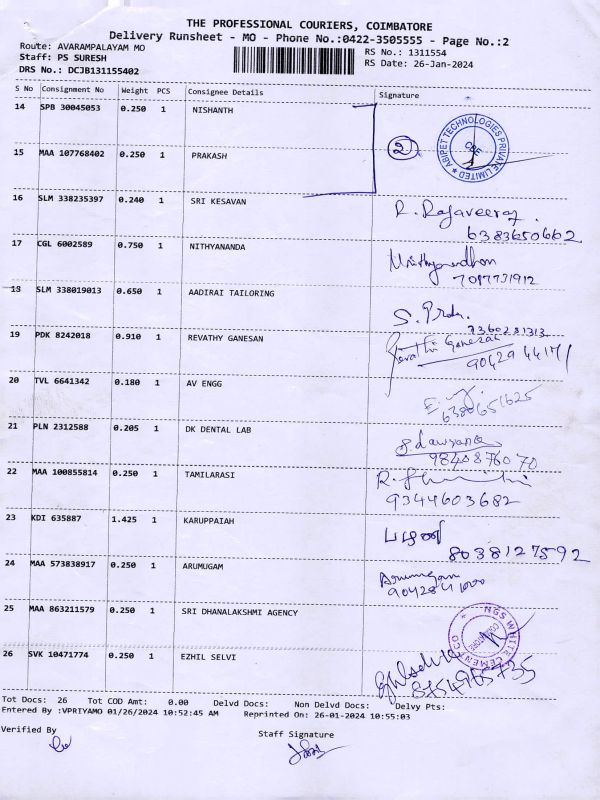 THE PROFESSIONAL COURIERS, COIMBATORE
Delivery Runsheet - MO - Phone No.:0422-3505555 - Page No.:2
Route: AVARAMPALAYAM MO
RS No.: 1311554
Staff: PS SURESH
RS Date: 26-Jan-2024
DRS No.: DCJB131155402
S No Consignment No Weight PCS Consignee Details Signature
14 SPB 30045053 0.250 1 NISHANTH
2
ABIPET TECHNOLOGIES PRIVATE LIMITED
CBE
15 MAA 107768402 0.250 1 PRAKASH
16 SLM 338235397 0.240 1 SRI KESAVAN
R. Rajaveeraj.
6383650662
17 CGL 6002589 0.750 1 NITHYANANDA
Nithyanandhan
7097731912
18 SLM 338019013 0.650 1 AADIRAI TAILORING
7360281313
19 PDK 8242018 0.910 1 REVATHY GANESAN
Revathi Ganesan
9042944171
20 TVL 6641342 0.180 1 AV ENGG
6380651625
21 PLN 2312588 0.205 1 DK DENTAL LAB
9840876070
22 MAA 100855814 0.250 1 TAMILARASI
9344603682
23 KDI 635887 1.425 1 KARUPPAIAH
8038127592
24 MAA 573838917 0.250 1 ARUMUGAM
Arumugam
25 MAA 863211579 0.250 1 SRI DHANALAKSHMI AGENCY
NGS WHITE CEMENT CO
26 SVK 10471774 0.250 1 EZHIL SELVI
8754965735
Tot Docs: 26 Tot COD Amt: 0.00 Delvd Docs: Non Delvd Docs: Delvy Pts:
Entered By :VPRIYAMO 01/26/2024 10:52:45 AM Reprinted On: 26-01-2024 10:55:03
Verified By
Staff Signature